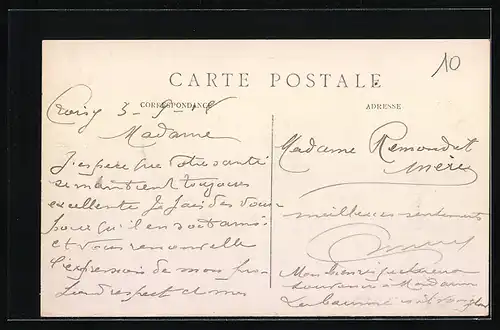 10
CARTE POSTALE
CORRESPONDANCE
ADRESSE
Croisy 3-9-18
Madame
J'espère que votre santé
se maintient toujours
excellente Je fais des vœux
pour qu'il en soit ainsi
et vous renouvelle
l'expression de mon pro-
fond respect et mes
Madame Remondet
mère
meilleurs sentiments
Mon bien respectueux
souvenir à Madame